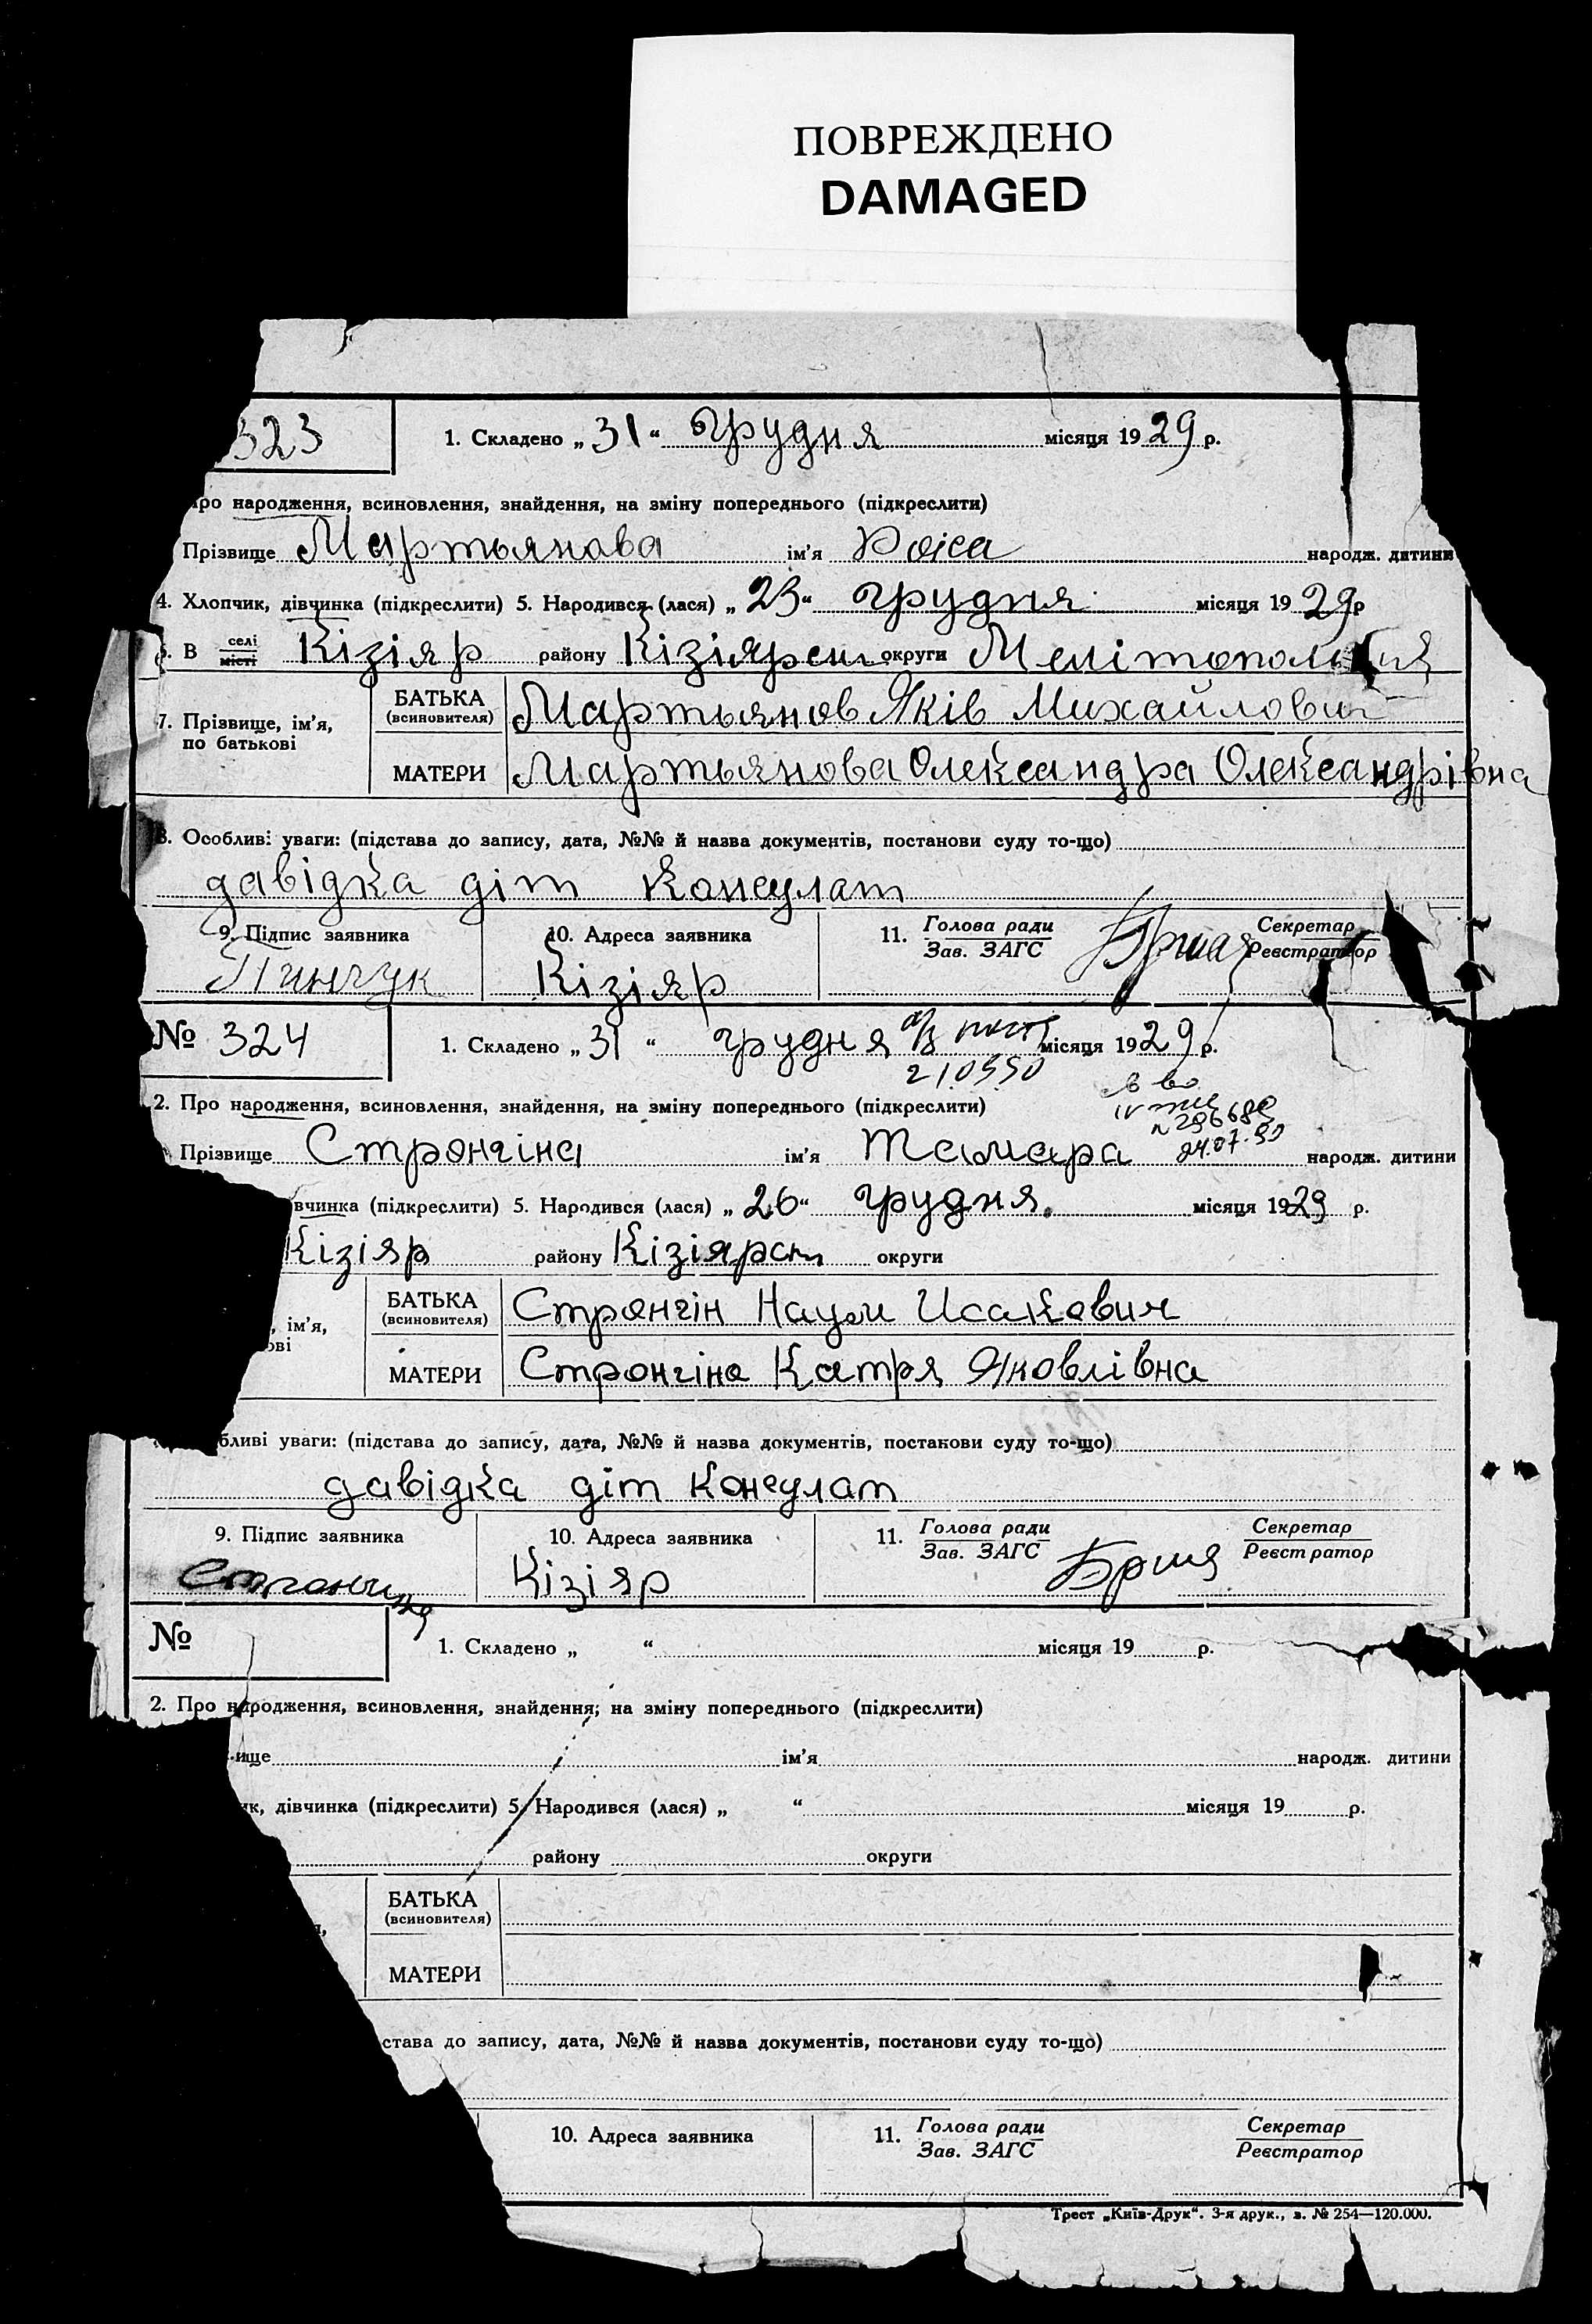 ПОВРЕЖДЕНО
DAMAGED
323
1. Складено „31“ грудня місяця 1929 р.
про народження, всиновлення, знайдення, на зміну попереднього (підкреслити)
Прізвище Мартьянова ім'я народж. дитини
4. Хлопчик, дівчинка (підкреслити) 5. Народився (лася) „23“ грудня місяця 1929 р
В селі місті Кізіяр району Кізіярськ округи
7. Прізвище, ім'я, по батькові
БАТЬКА (всиновителя) Мартьянов Яків Михайлович
МАТЕРИ Мартьянова Олександра Олександрівна
8. Особливі уваги: (підстава до запису, дата, №№ й назва документів, постанови суду то-що)
давідка діт консулат
9. Підпис заявника 10. Адреса заявника 11. Голова ради Зав. ЗАГС Секретар Реєстратор
Пинчук Кізіяр
№ 324
1. Складено „31“ грудня місяця 1929 р.
210550
2. Про народження, всиновлення, знайдення, на зміну попереднього (підкреслити)
Прізвище Стронгіна ім'я Тамара народж. дитини
24.07.90
вчинка (підкреслити) 5. Народився (лася) „26“ грудня місяця 1929 р.
Кізіяр району Кізіярськ округи
, ім'я,
ові
БАТЬКА (всиновителя) Стронгін Наум Исакович
МАТЕРИ Стронгіна Катря Яковлівна
бливі уваги: (підстава до запису, дата, №№ й назва документів, постанови суду то-що)
давідка діт консулат
9. Підпис заявника 10. Адреса заявника 11. Голова ради Зав. ЗАГС Секретар Реєстратор
Кізіяр
№
1. Складено „ “ місяця 19 р.
2. Про народження, всиновлення, знайдення, на зміну попереднього (підкреслити)
ище ім'я народж. дитини
ик, дівчинка (підкреслити) 5. Народився (лася) „ “ місяця 19 р.
району округи
БАТЬКА (всиновителя)
МАТЕРИ
става до запису, дата, №№ й назва документів, постанови суду то-що)
10. Адреса заявника 11. Голова ради Зав. ЗАГС Секретар Реєстратор
Трест „Київ-Друк“. 3-я друк., з. № 254—120.000.